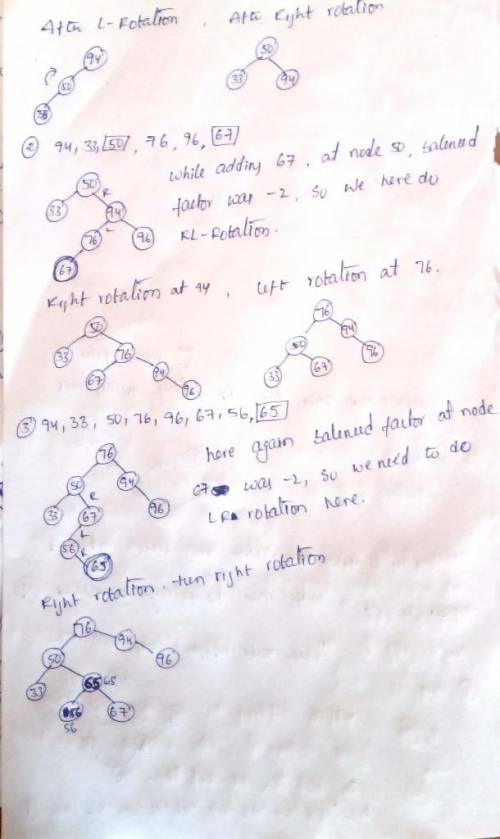 After L-Rotation , After Right rotation
94 50
50 33 94
33
② 94, 33, 50, 76, 96, 67
while adding 67, at node 50, balenced
50 R
factor was -2, so we here do
33 94
L
76 96
RL-Rotation.
67
Right rotation at 94 , Left rotation at 76.
50 76
33 76 50 94
67 94 96 33 67 96
③ 94, 33, 50, 76, 96, 67, 56, 65
here again balenced factor at node
76
67 was -2, so we need to do
50 R 94
LR rotation here.
33 67 96
L
56 R
65
Right rotation. then right rotation
76 94
50 96
33 65 65
56 67
56